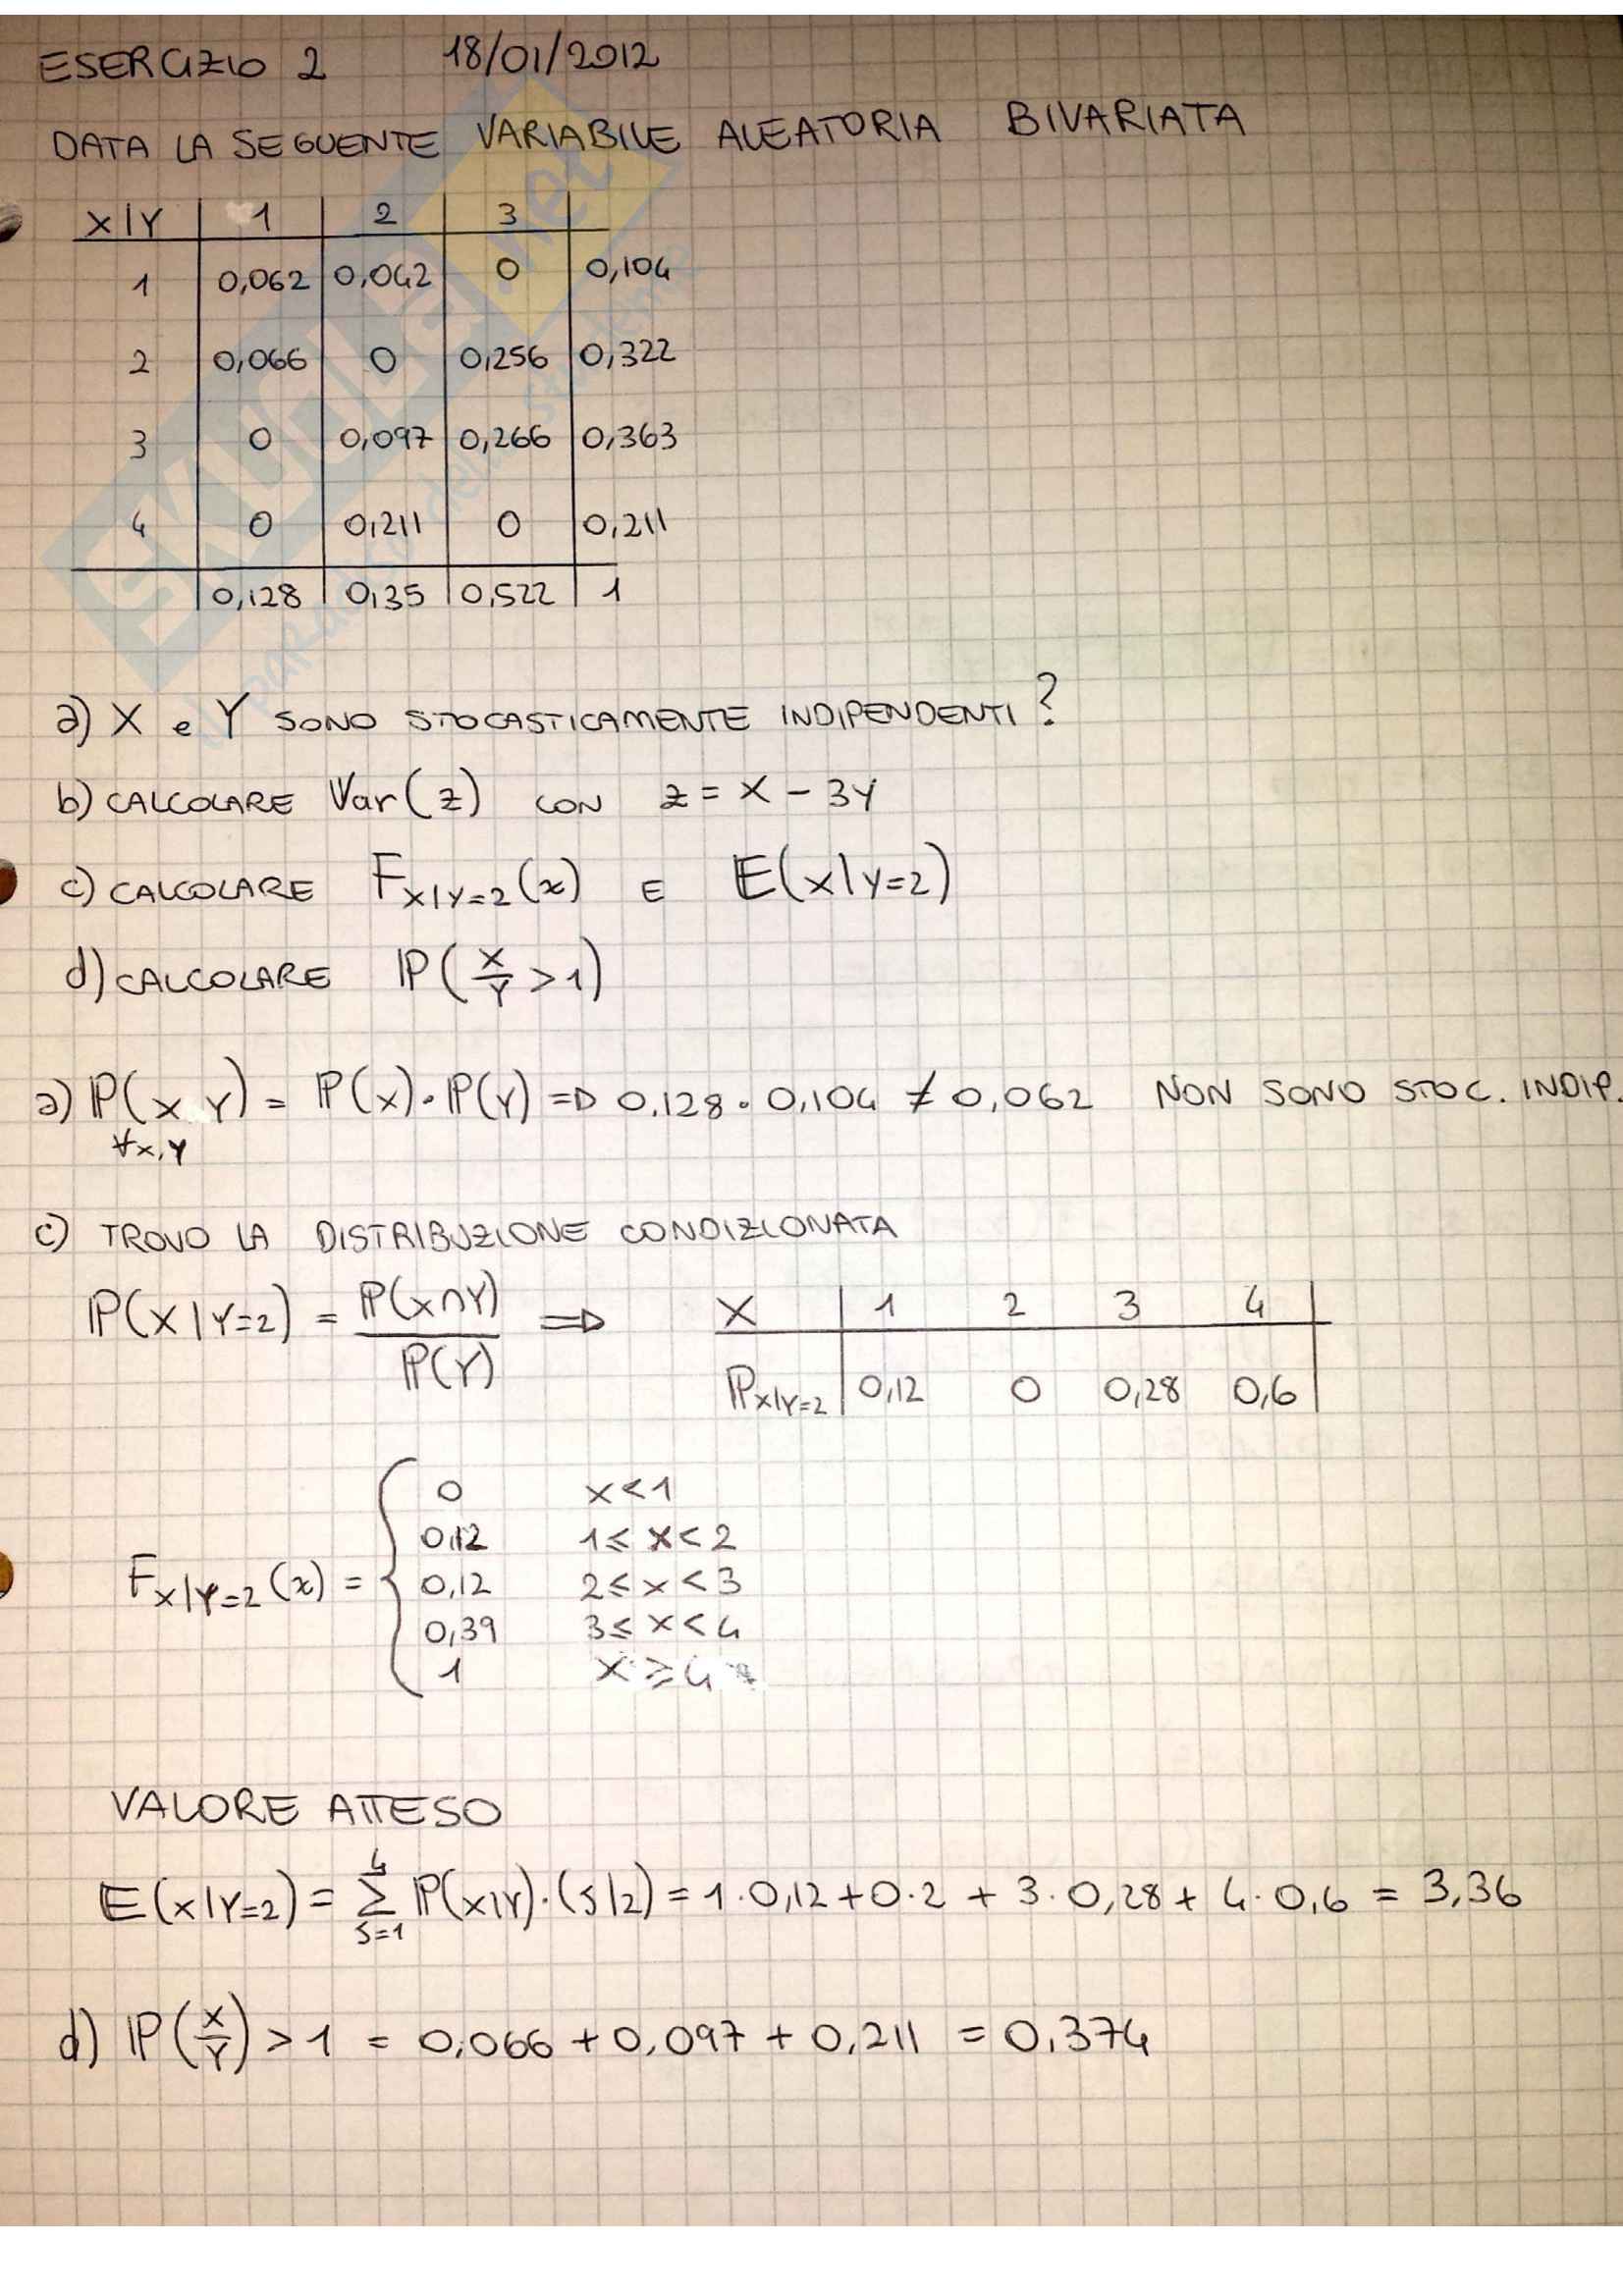 ESERCIZIO 2 18/01/2012
DATA LA SEGUENTE VARIABILE ALEATORIA BIVARIATA
X|Y 1 2 3
1 0,062 0,042 0 0,104
2 0,066 0 0,256 0,322
3 0 0,097 0,266 0,363
4 0 0,211 0 0,211
0,128 0,35 0,522 1
a) X e Y SONO STOCASTICAMENTE INDIPENDENTI?
b) CALCOLARE Var(z) CON z = X - 3Y
c) CALCOLARE F_{X|Y=2}(x) E E(X|Y=2)
d) CALCOLARE P(X/Y > 1)
a) P(X Y) = P(X)·P(Y) => 0,128 · 0,104 ≠ 0,062 NON SONO STOC. INDIP.
∀x,y
c) TROVO LA DISTRIBUZIONE CONDIZIONATA
P(X|Y=2) = P(X∩Y)/P(Y) => X 1 2 3 4
P_{X|Y=2} 0,12 0 0,28 0,6
0 x<1
0,12 1≤x<2
F_{X|Y=2}(x) = { 0,12 2≤x<3
0,39 3≤x<4
1 x≥4
VALORE ATTESO
E(X|Y=2) = ∑_{S=1}^{4} P(X|Y)·(S|2) = 1·0,12+0·2 + 3·0,28 + 4·0,6 = 3,36
d) P(X/Y) > 1 = 0,066 + 0,097 + 0,211 = 0,374